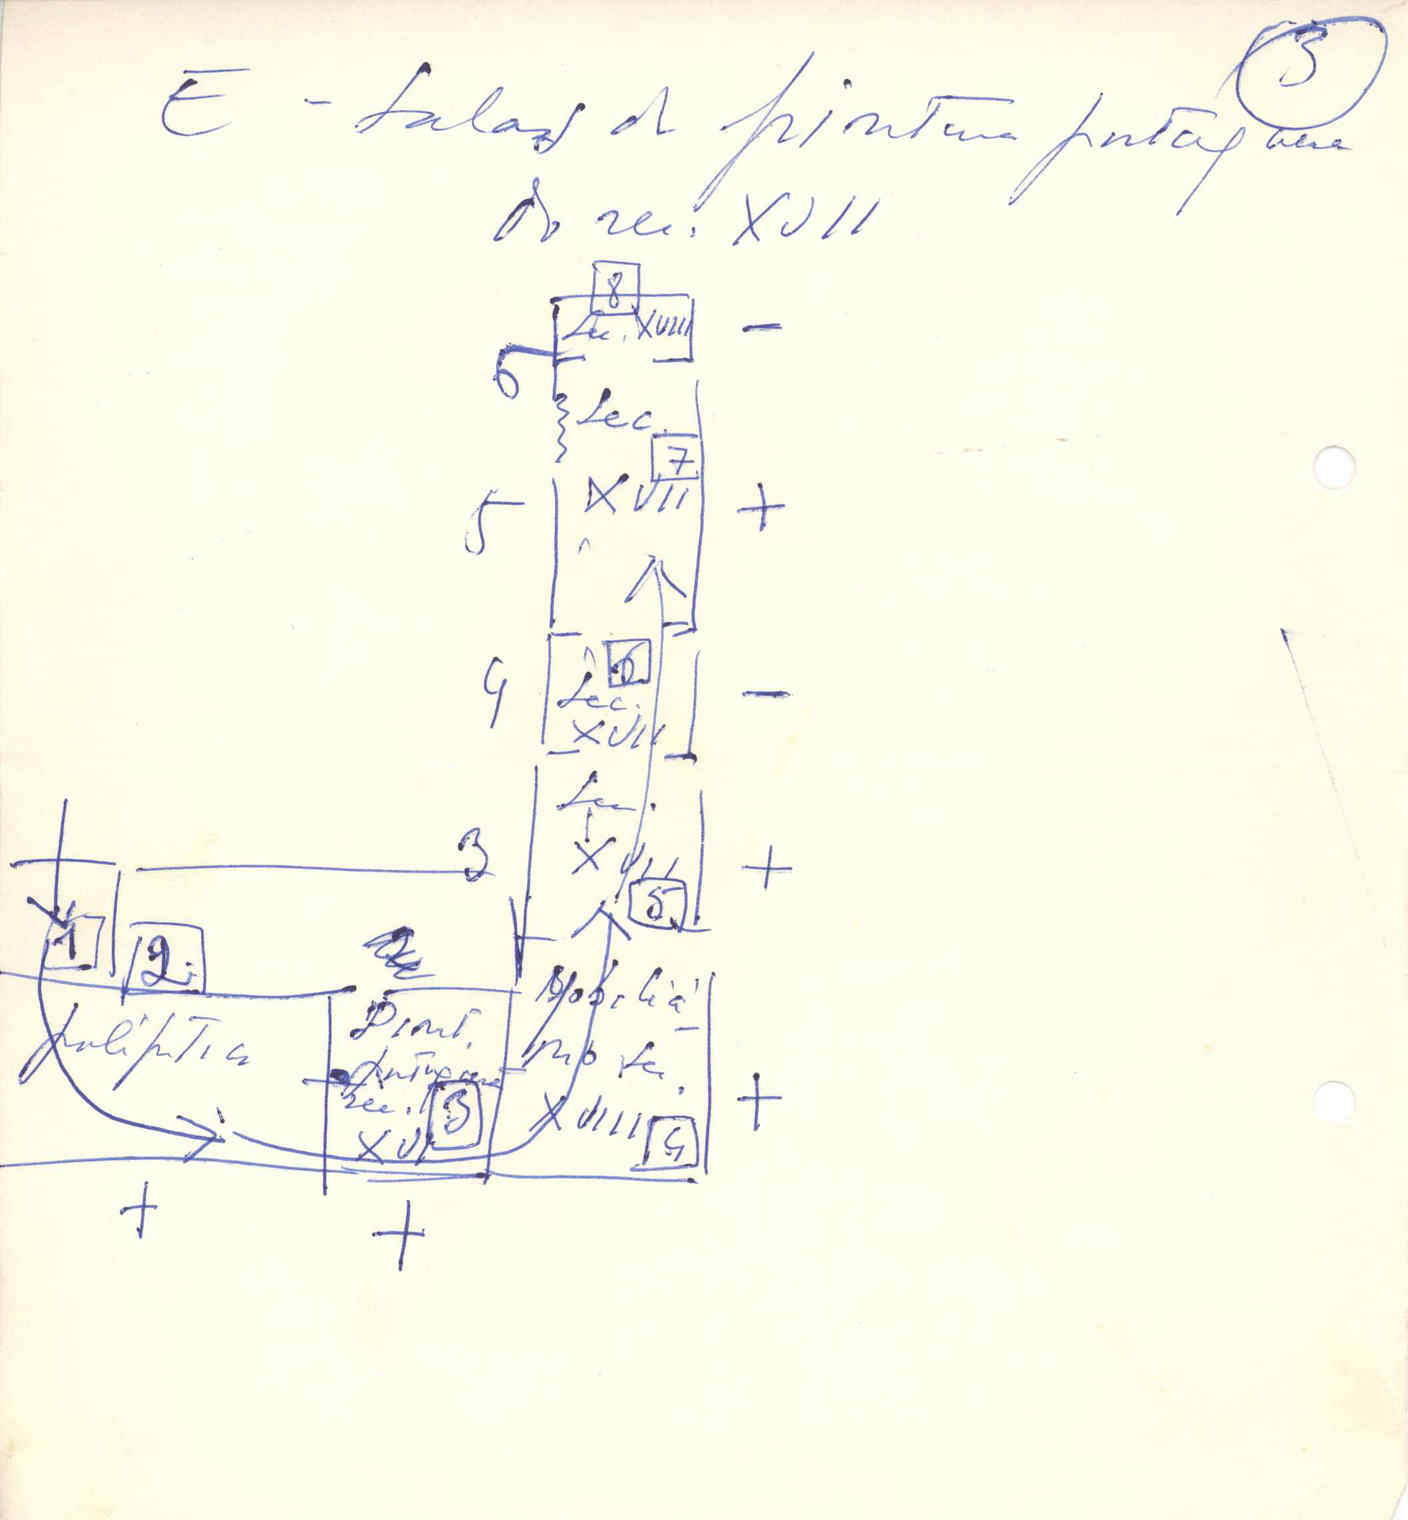 3
E - Salas de pintura portuguesa
do sec. XVII
8
Sec. XVIII -
6
Sec.
7
XVII
5 +
6
4 -
Sec.
XVII
Sec.
3
XVII +
5
1
2.
Mobiliá-
políptico
Pint.
portuguesa
rio sec.
sec.
3
XVI
XVIII +
4
+
+